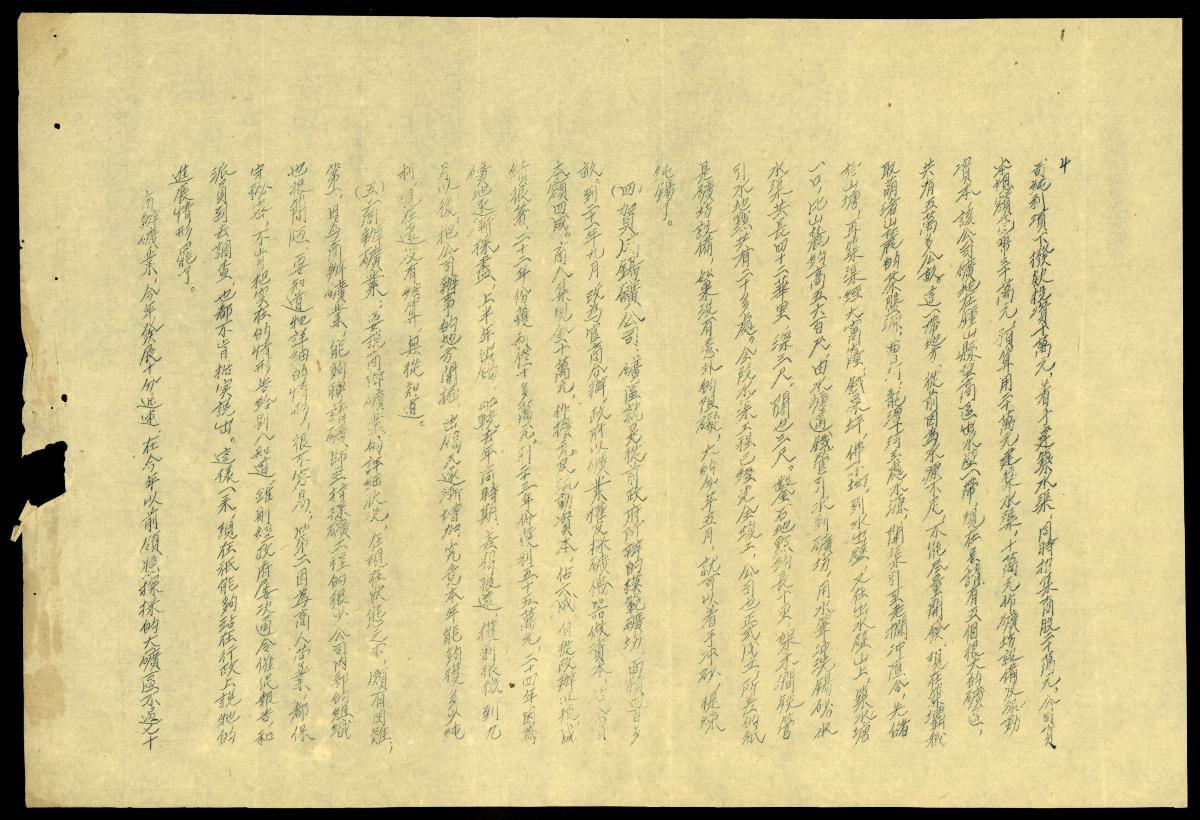 4
於純利項下撥欵投資十萬元，着手建築水渠，同時招集商股二十萬元，公司資
本總額定為三十萬元，預算用二十萬元建築水渠，十萬元作礦坊設備及流動
資本，該公司礦地在鍾山縣望高區出水壁一帶，現在呈請有五個很大的礦區，
共有五萬多公畝。這一帶地方，從前因為水源不足，不能尽量開發，現在築壩截
取萌渚山麓的水發源，龍潭河玉處水源，開渠引至老欄冲匯合，先儲
於山塘，再築渠經大窩嶺，到水出壁，又在出水壁山上，築水塘
一口，比山麓約高五六百尺，由水塘通鐵管引水到礦坊，用水筆沖洗錫砂，水
水渠共長四十二華里，深三尺，闊也三尺。鑿石地點約長十里，架木澗鐵管
引水地點共有二十多處。全段水渠工程已經完全竣工，公司也正式成立，所差的祗
是礦坊設備，如果沒有意外的阻礙，大約今年五月，就可以着手冲砂，提煉
純錫了。
（四）賀縣錫礦公司：礦區就是從前政府所辦的模範礦坊，面積四百多
畝，到二十一年九月，改為官商合辦，政府以礦業權及採礦機器作資本，佔資
本額四成，商人集現金十萬元，作擴充及流動資本，佔六成，自從改辦以後，成
績很著，二十二年份獲利僅十多萬元，到二十三年份獲利五十五萬元，二十四年因舊
礦地逐漸採盡，上半年出錫，比較去年同時期，差得很遠，獲利很微，到九
月以後，把公司辦事的地方開掘，出錫又逐漸增加，究竟本年能夠獲多少純
利，現在還沒有結算，無從知道。
（五）商辦礦業：要說商辦礦業的詳細狀況，在現在狀態之下，頗有困難；
第一，因為商辦礦業，能夠聘請礦師主持採礦工程的很少，公司內部的組織
也很簡陋，要知道牠詳細的情形，很不容易，第二因為商人營業，都保
守秘密，不肯把實在的情形告給別人知道，雖則經政府屢次通令催促報告，和
派員到去調查，也都不肯据实說出。這樣一來，現在祗能夠站在行政上說牠的
進展情形罷了。
商辦礦業，今年發展十分迅速，在今年以前，領照採探的大礦區不過七十